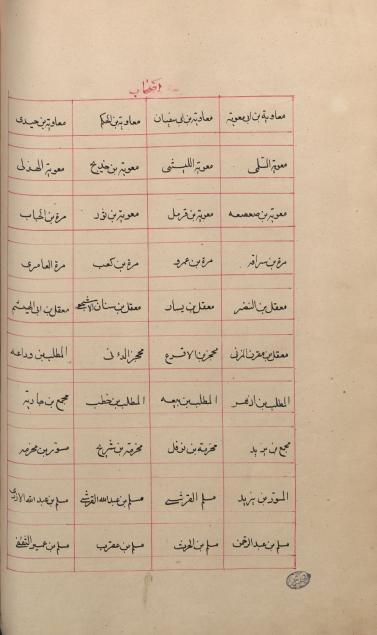 معاوية بن ابى معوية معاوية بن ابى سفيان معاوية بن الحكم معاوية بن حيدى
معوية السلمى معوية الليثى معوية بن خديج معوية الهذلى
معوية بن صعصعه معوية بن قرمل معوية بن ثور مرة بن الحباب
مرة بن سراقه مرة بن عمرو مرة بن كعب مرة العامرى
معقل بن المنذر معقل بن يسار معقل بن سنان الاشجعى معقل بن ابى الهيثم
معقل بن مقرن المزنى محجن بن الادرع محجن الدئلى المطلب بن وداعه
المطلب بن ازهر المطلب بن ربيعه المطلب بن حنطب مجمع بن جارية
مجمع بن يزيد مخرمة بن نوفل مخرمة بن شريح مسور بن مخرمه
المسور بن يزيد مسلم القرشى مسلم بن عبدالله القرشى مسلم بن عبدالله الازدى
مسلم بن عبدالرحمن مسلم بن الحرث مسلم بن عقرب مسلم بن عمير الثقفى